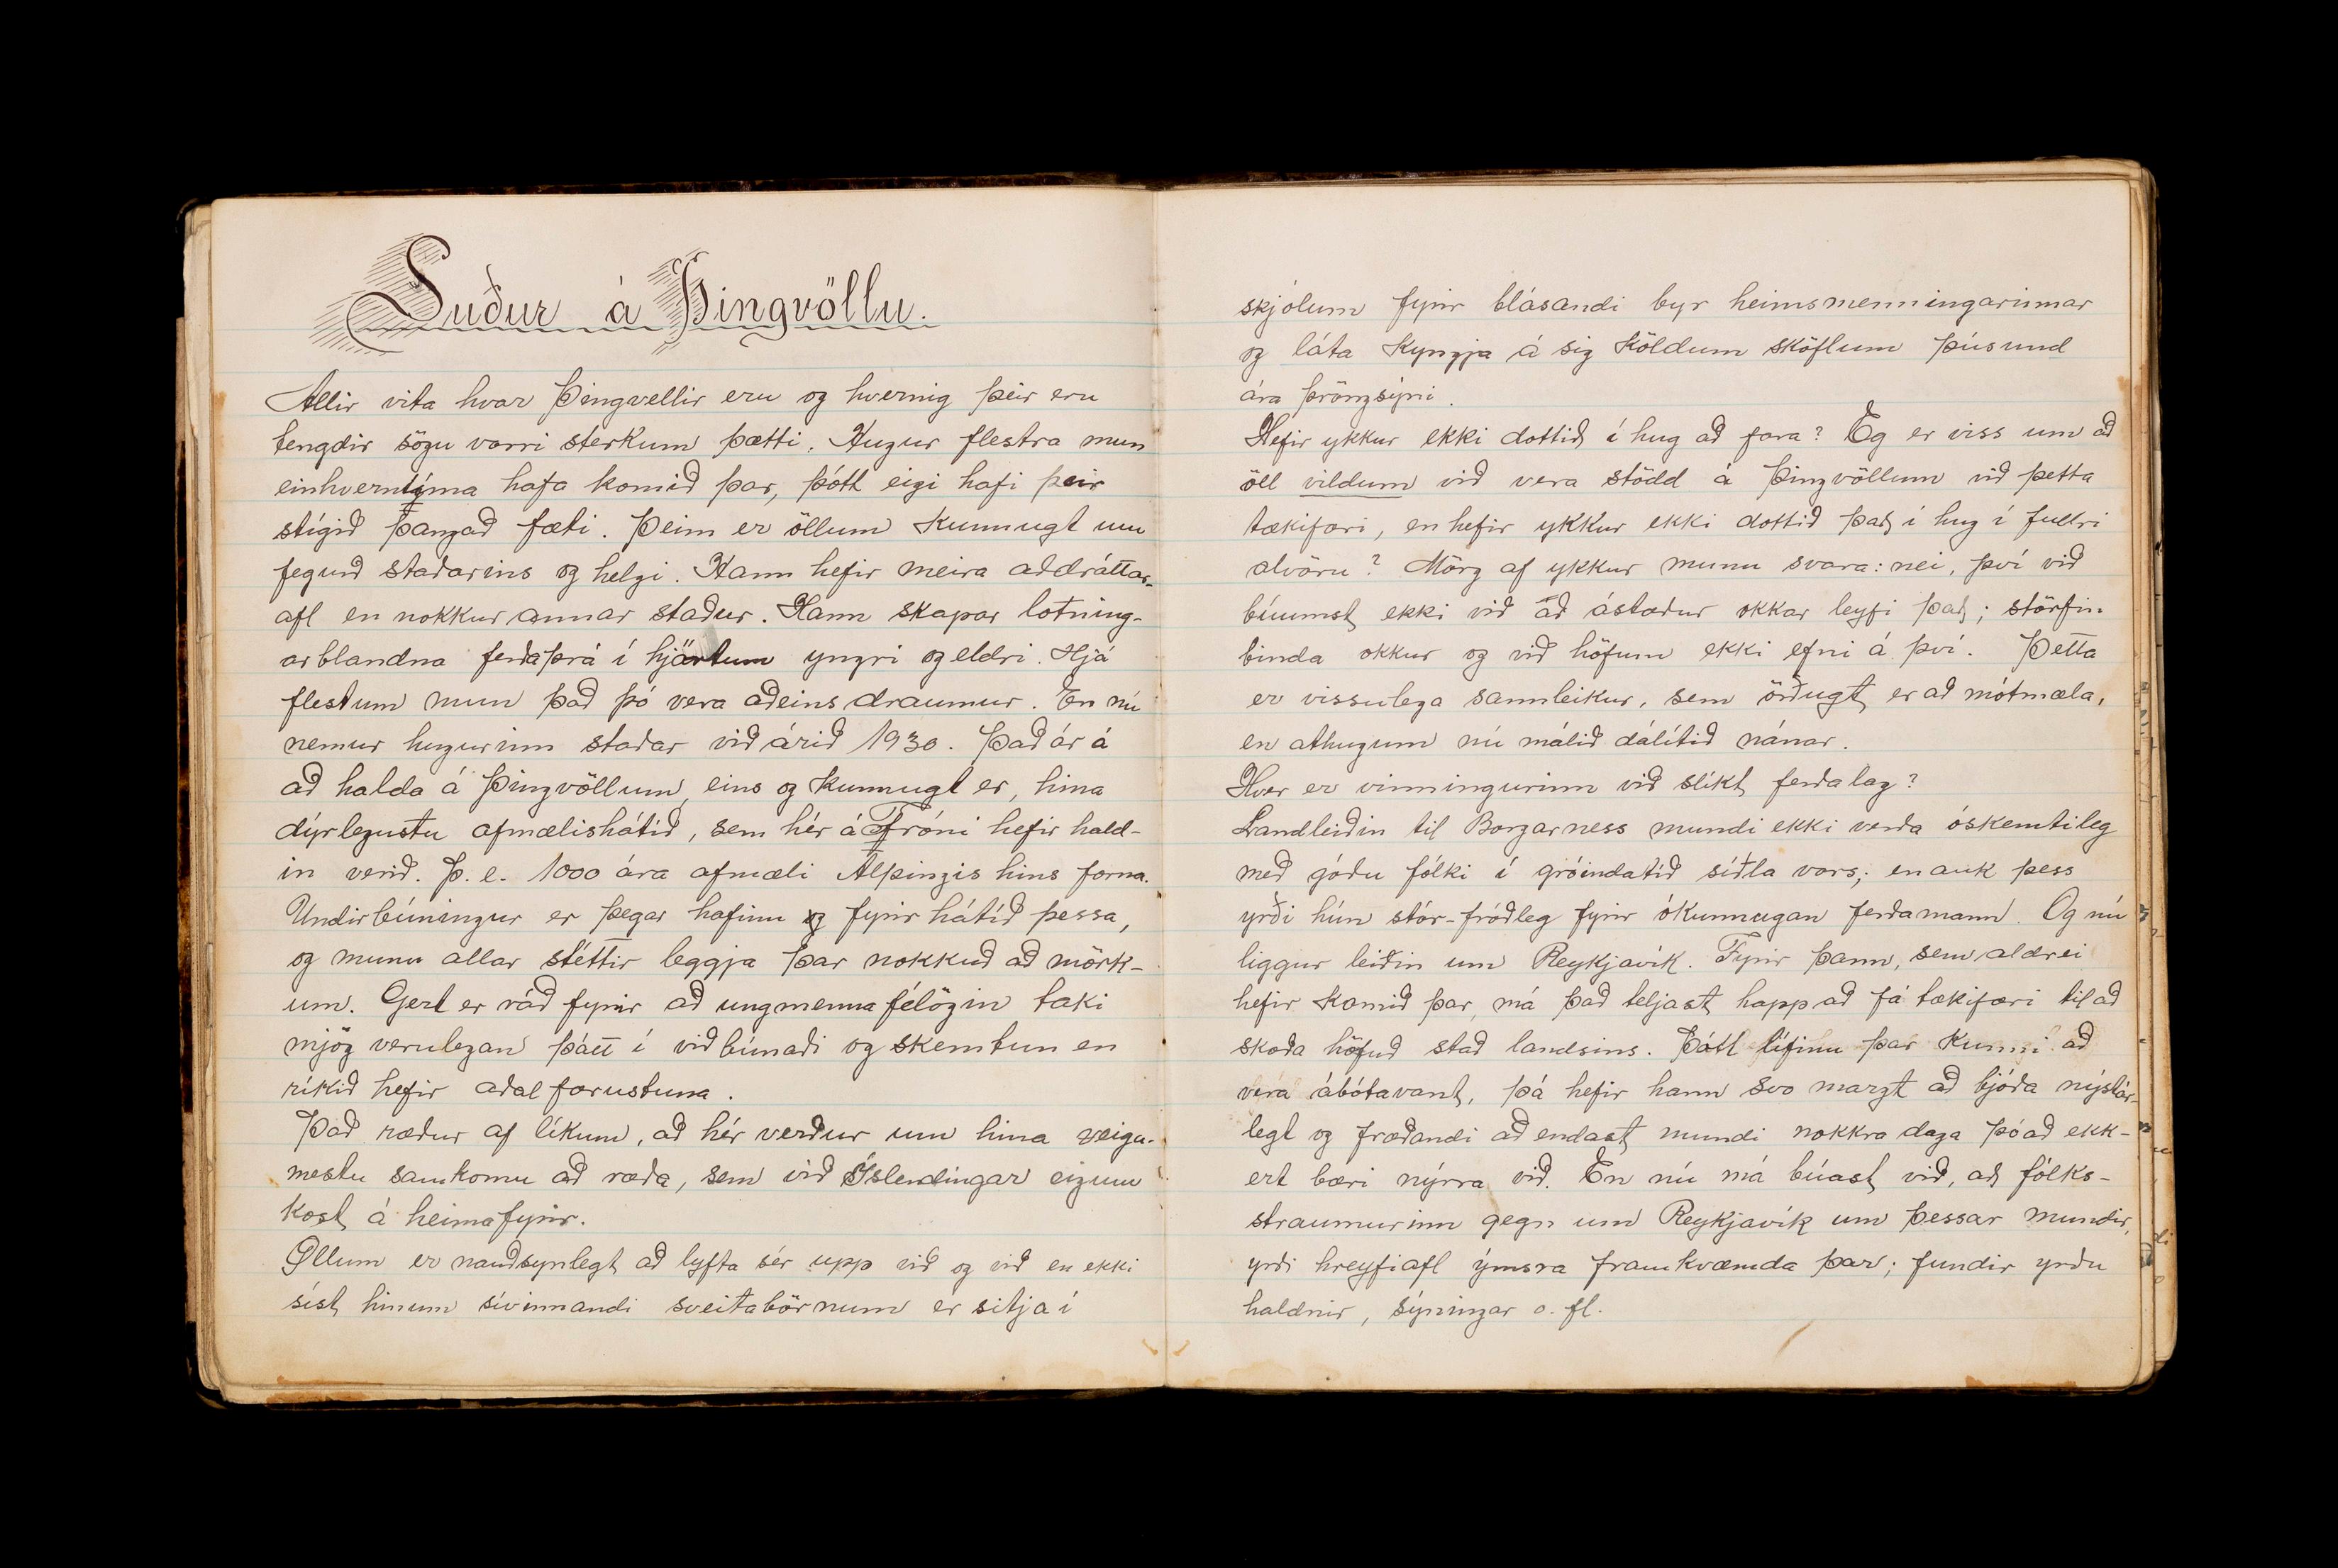 Suður á Þingvöllu.
Allir vita hvar Þingvellir eru og hvernig þeir eru
tengdir sögu vorri sterkum þætti. Hugur flestra mun
einherntíma hafa komið þar, þótt eigi hafi þeir
stígið þangað fæti. Þeim er öllum kunnugt um
fegurð staðarins og helgi. Hann hefir meira aðdráttar-
afl en nokkur annar staður. Hann skapar lotning-
arblandna ferðaþrá í hjörtum yngri og eldri. Hjá
flestum mun það þó vera aðeins draumur. En nú
nemur hugurinn staðar við árið 1930. Það ár á
að halda á Þingvöllum, eins og kunnugt er, hina
dýrlegustu afmælishátíð, sem hér á Fróni hefir hald-
in verið. Þ. e. 1000 ára afmæli Alþingis hins forna.
Undirbúningur er þegar hafinn og fyrir hátíð þessa,
og munu allar stéttir leggja þar nokkuð að mörk-
um. Gert er ráð fyrir að ungmennafélögin taki
mjög verulegan þátt í viðbúnaði og skemtun en
ríkið hefir aðal forustuna.
Það ræður af líkum, að hér verður um hina veiga-
mestu samkomu að ræða, sem við Íslendingar eigum
kost á heimafyrir.
Öllum er nauðsynlegt að lyfta sér upp við og við en ekki
síst hinum sívinnandi sveitabörnum er sitja í
skjólum fyrir blásandi byr heimsmenningarinnar
og láta kyngja á sig köldum sköflum þúsund
ára þröngsýni.
Hefir ykkur ekki dottið í hug að fara? Eg er viss um að
öll vildum við vera stödd á Þingvöllum við þetta
tækifæri, en hefir ykkur ekki dottið það í hug í fullri
alvöru? Mörg af ykkur munu svara: nei, því við
búumst ekki við að ástæður okkar leyfi það; störfin
binda okkur og við höfum ekki efni á því. Þetta
er vissulega sannleikur, sem örðugt er að mótmæla,
en athugum nú málið dálítið nánar.
Hver er vinningurinn við slíkt ferðalag?
Landleiðin til Borgarness mundi ekki verða óskemtileg
með góðu fólki í gróindatíð síðla vors; en auk þess
yrði hún stór-fróðleg fyrir ókunnugan ferðamann. Og nú
liggur leiðin um Reykjavík. Fyrir þann, sem aldrei
hefir komið þar, má það teljast happ að fá tækifæri til að
skoða höfuð stað landsins. Þótt lífinu þar kunni að
vera ábótavant, þá hefir hann svo margt að bjóða nýstár-
legt og fræðandi að endast mundi nokkra daga þó að ekk-
ert bæri nýrra við. En nú má búast við, að fólks-
straumurinn gegn um Reykjavík um þessar mundir,
yrði hreyfiafl ýmsra framkvæmda þar; fundir yrðu
haldnir, sýningar o. fl.